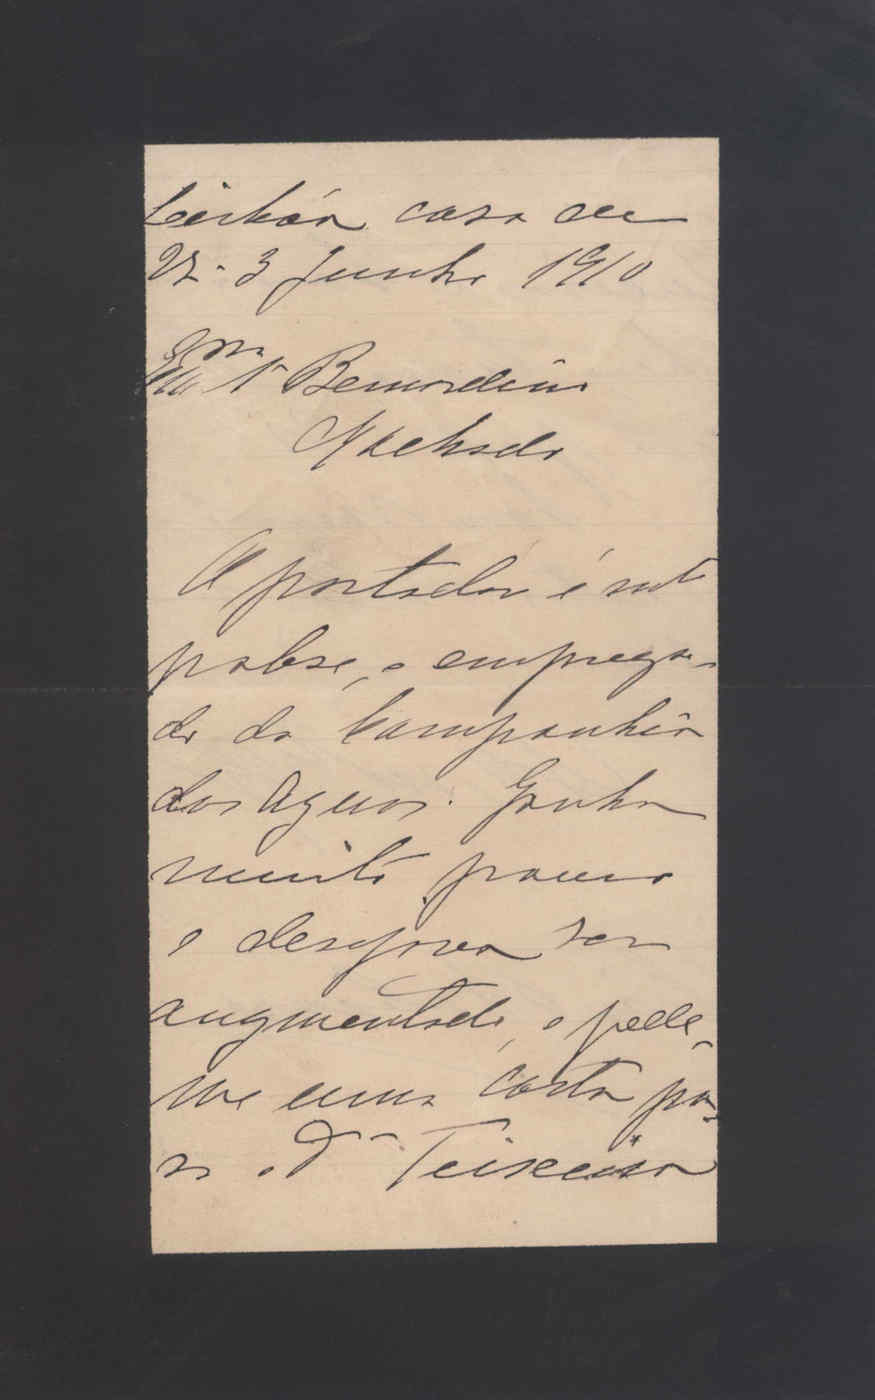 Lisbôa, casa de
V. 3 Junho 1910
Exmo Sr Bernardino
Machado
O portador é mto
pobre, e emprega-
do da Companhia
das Aguas. Ganha
muito pouco
e desejava ser
augmentado, e pede-
me uma carta pa-
ra o Dr Teixeira